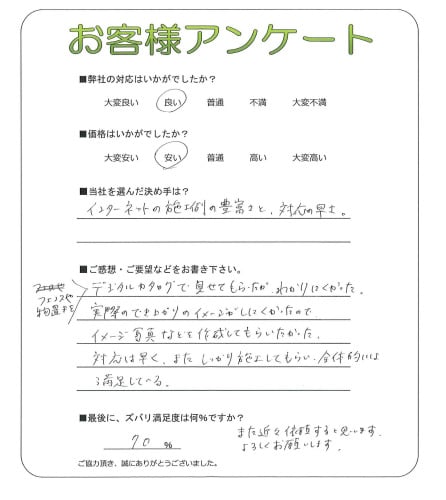 お客様アンケート
■弊社の対応はいかがでしたか?
大変良い 良い 普通 不満 大変不満
■価格はいかがでしたか?
大変安い 安い 普通 高い 大変高い
■当社を選んだ決め手は?
インターネットの施工例の豊富さと、対応の早さ。
■ご感想・ご要望などをお書き下さい。
フェンスや
物置を
デジタルカタログで見せてもらったが、わかりにくかった。
実際のでき上がりのイメージがしにくかったので
イメージ写真などを作成してもらいたかった。
対応は早く、また しっかり施工してもらい、全体的には
満足している。
■最後に、ズバリ満足度は何%ですか?
70 %
また近々依頼すると思います。
よろしくお願いします。
ご協力頂き、誠にありがとうございました。